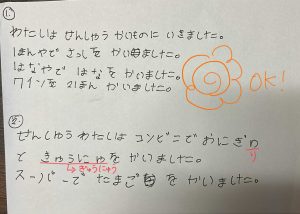 1.
わたしは せんしゅう かいものに いきました。
ほんやで ざっしを かいました。
はなやで はなを かいました。
ワインを 2ほん かいました。
OK!
2.
せんしゅう わたしは コンビニで おにぎり
と きゅうにゅを かいました。
り
→ぎゅうにゅう
スーパーで たまご を かいました。